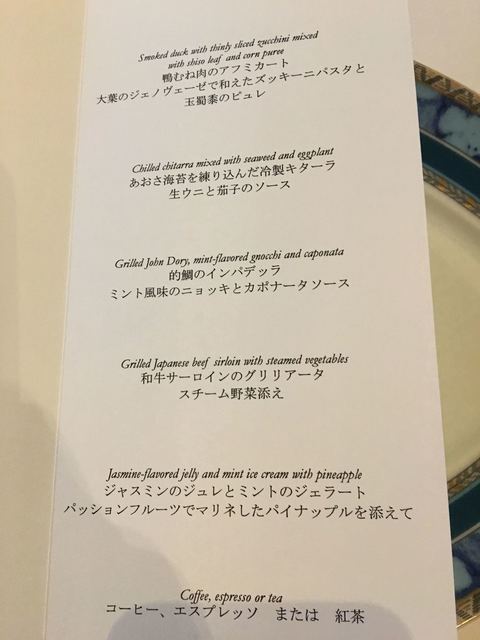 Smoked duck with thinly sliced zucchini mixed
with shiso leaf and corn puree
鴨むね肉のアフミカート
大葉のジェノヴェーゼで和えたズッキーニパスタと
玉蜀黍のピュレ
Chilled chitarra mixed with seaweed and eggplant
あおさ海苔を練り込んだ冷製キターラ
生ウニと茄子のソース
Grilled John Dory, mint-flavored gnocchi and caponata
的鯛のインパデッラ
ミント風味のニョッキとカポナータソース
Grilled Japanese beef sirloin with steamed vegetables
和牛サーロインのグリリアータ
スチーム野菜添え
Jasmine-flavored jelly and mint ice cream with pineapple
ジャスミンのジュレとミントのジェラート
パッションフルーツでマリネしたパイナップルを添えて
Coffee, espresso or tea
コーヒー、エスプレッソ　または　紅茶